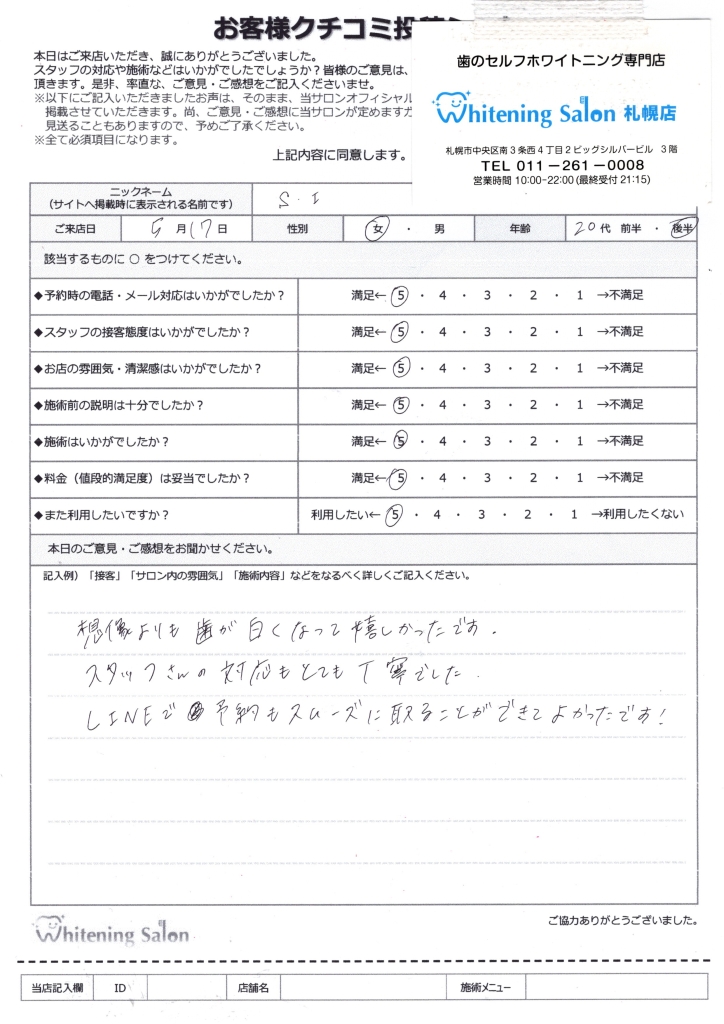 お客様クチコミ投稿
歯のセルフホワイトニング専門店
Whitening Salon 札幌店
札幌市中央区南3条西4丁目2ビッグシルバービル 3階
TEL 011-261-0008
営業時間 10:00-22:00(最終受付 21:15)
本日はご来店いただき、誠にありがとうございました。
スタッフの対応や施術などはいかがでしたでしょうか?皆様のご意見は、
頂きます。是非、率直な、ご意見・ご感想をご記入くださいませ。
※以下にご記入いただきましたお声は、そのまま、当サロンオフィシャル
掲載させていただきます。尚、ご意見・ご感想に当サロンが定めますガ
見送ることもありますので、予めご了承ください。
※全て必須項目になります。
上記内容に同意します。
ニックネーム
(サイトへ掲載時に表示される名前です) S.I
ご来店日 5月17日 性別 女 ・ 男 年齢 20代 前半 ・ 後半
該当するものに ○ をつけてください。
◆予約時の電話・メール対応はいかがでしたか? 満足← 5 ・ 4 ・ 3 ・ 2 ・ 1 →不満足
◆スタッフの接客態度はいかがでしたか? 満足← 5 ・ 4 ・ 3 ・ 2 ・ 1 →不満足
◆お店の雰囲気・清潔感はいかがでしたか? 満足← 5 ・ 4 ・ 3 ・ 2 ・ 1 →不満足
◆施術前の説明は十分でしたか? 満足← 5 ・ 4 ・ 3 ・ 2 ・ 1 →不満足
◆施術はいかがでしたか? 満足← 5 ・ 4 ・ 3 ・ 2 ・ 1 →不満足
◆料金(値段的満足度)は妥当でしたか? 満足← 5 ・ 4 ・ 3 ・ 2 ・ 1 →不満足
◆また利用したいですか? 利用したい← 5 ・ 4 ・ 3 ・ 2 ・ 1 →利用したくない
本日のご意見・ご感想をお聞かせください。
記入例)「接客」「サロン内の雰囲気」「施術内容」などをなるべく詳しくご記入ください。
想像よりも歯が白くなって嬉しかったです。
スタッフさんの対応もとても丁寧でした。
LINEで予約もスムーズに取ることができてよかったです!
ご協力ありがとうございました。
Whitening Salon
当店記入欄 ID 店舗名 施術メニュー